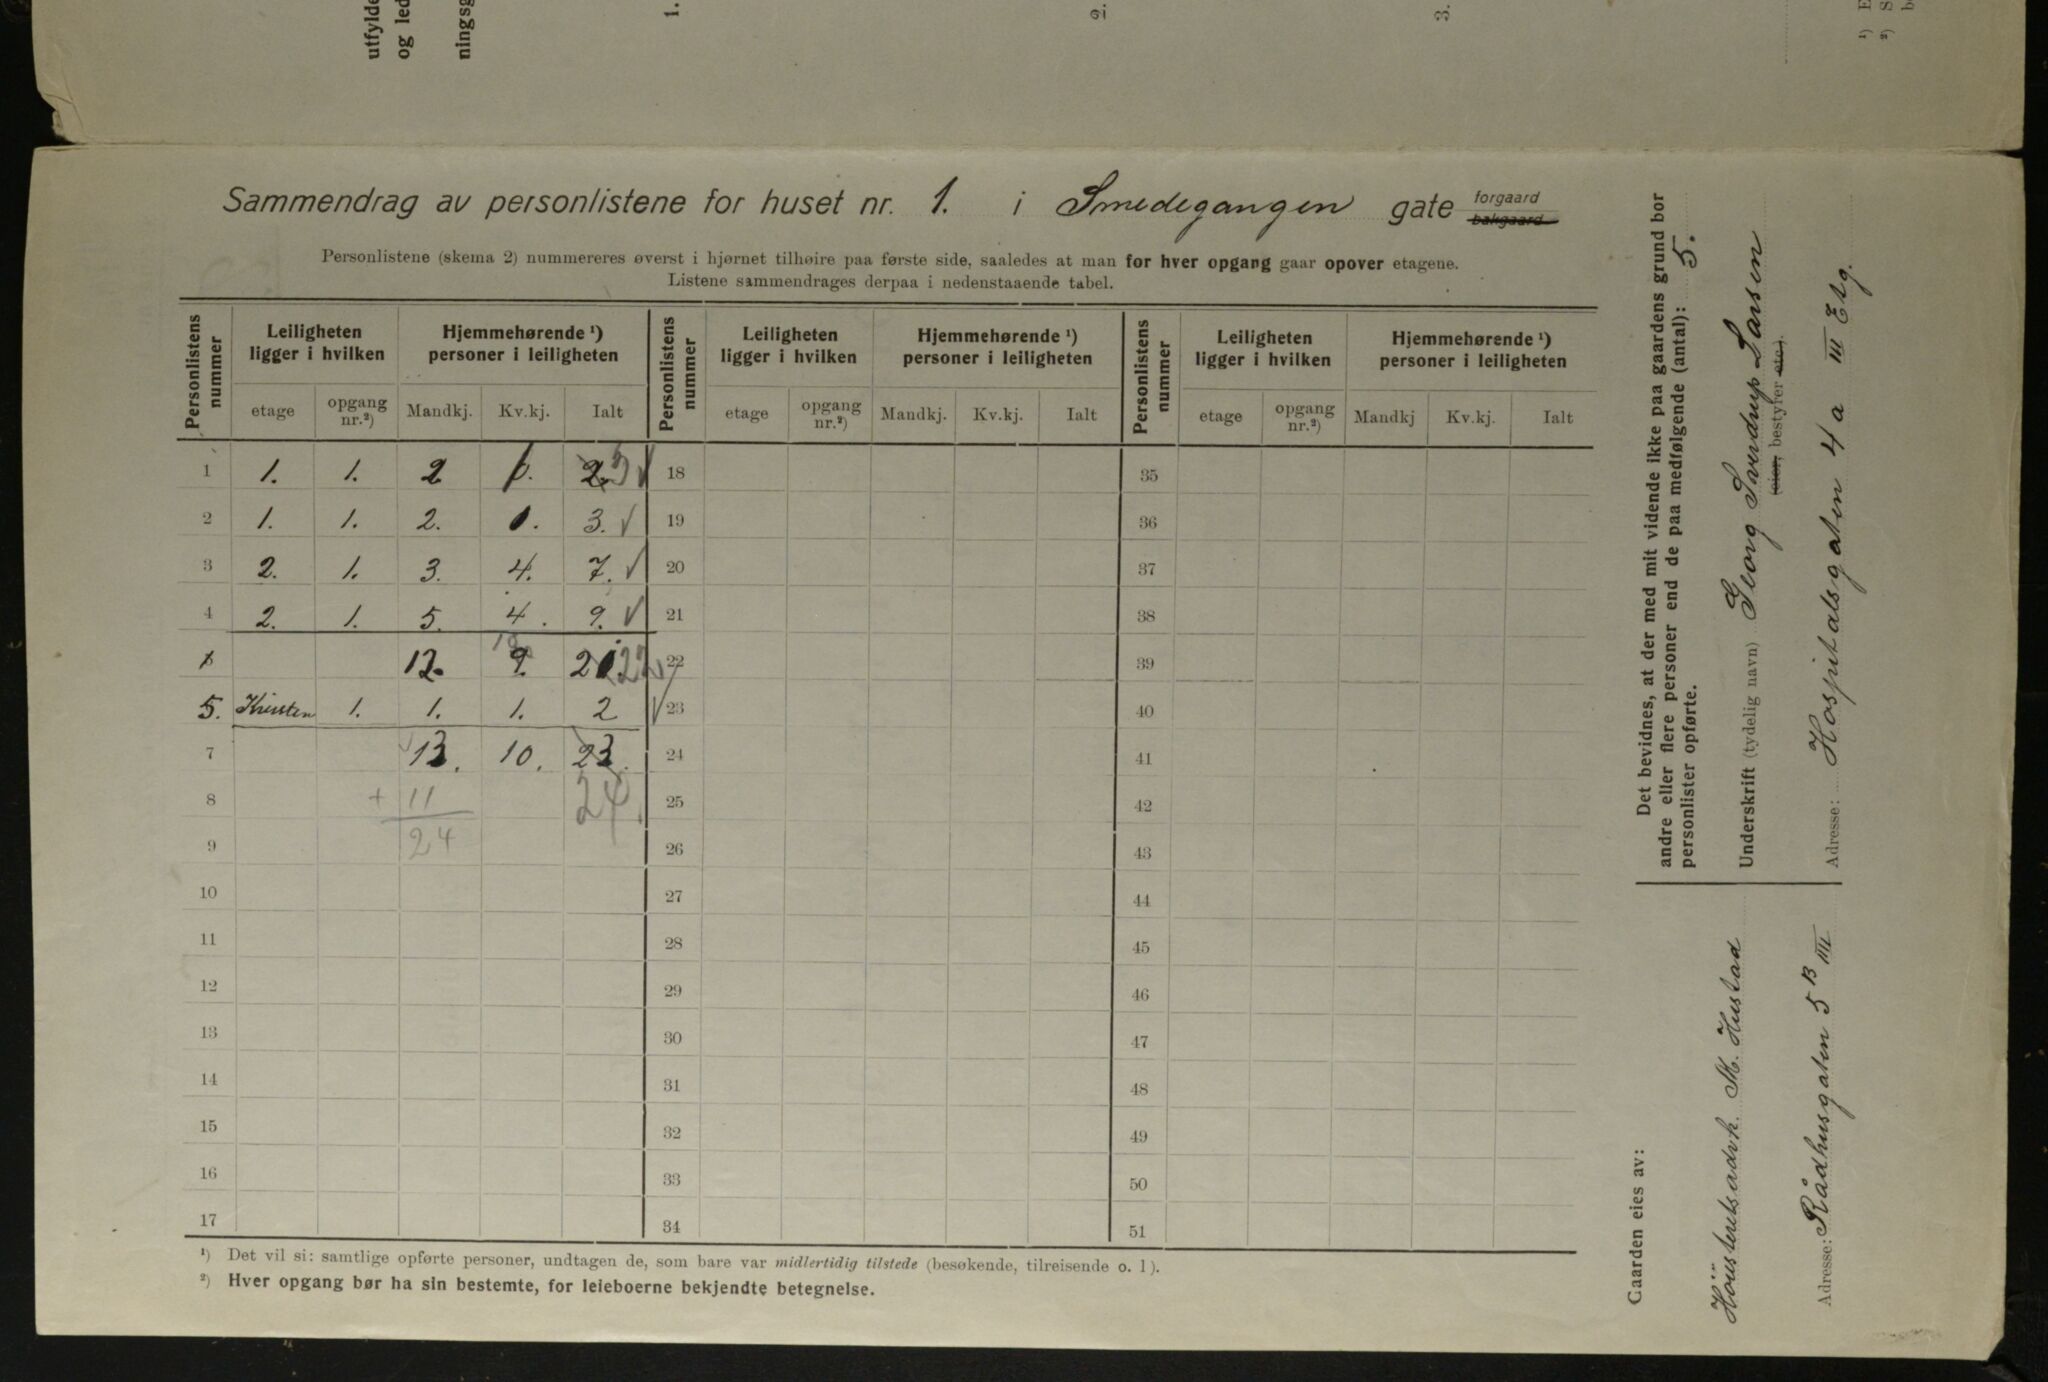 utfylde
og led
ningsg
1.
2.
3.
¹) E
²) S
b
Sammendrag av personlistene for huset nr. 1. i Smedegangen gate forgaard bakgaard
Personlistene (skema 2) nummereres øverst i hjørnet tilhøire paa første side, saaledes at man for hver opgang gaar opover etagene.
Listene sammendrages derpaa i nedenstaaende tabel.
Personlistens nummer | Leiligheten ligger i hvilken | Hjemmehørende ¹) personer i leiligheten | Personlistens nummer | Leiligheten ligger i hvilken | Hjemmehørende ¹) personer i leiligheten | Personlistens nummer | Leiligheten ligger i hvilken | Hjemmehørende ¹) personer i leiligheten
etage | opgang nr.²) | Mandkj. | Kv.kj. | Ialt | etage | opgang nr.²) | Mandkj. | Kv.kj. | Ialt | etage | opgang nr.²) | Mandkj | Kv.kj. | Ialt
1 | 1. | 1. | 2 | 1. | 2. 3 ✓ | 18 | 35
2 | 1. | 1. | 2. | 1. | 3. ✓ | 19 | 36
3 | 2. | 1. | 3. | 4. | 7. ✓ | 20 | 37
4 | 2. | 1. | 5. | 4. | 9. ✓ | 21 | 38
12. | 10 9. | 21. 22 | 22 | 39
5. | Kvisten | 1. | 1. | 1. | 2 ✓ | 23 | 40
7 | 13. | 10. | 23. | 24 | 41
8 | + 11 | 24. | 25 | 42
9 | 24 | 26 | 43
10 | 27 | 44
11 | 28 | 45
12 | 29 | 46
13 | 30 | 47
14 | 31 | 48
15 | 32 | 49
16 | 33 | 50
17 | 34 | 51
¹) Det vil si: samtlige opførte personer, undtagen de, som bare var midlertidig tilstede (besøkende, tilreisende o. l).
²) Hver opgang bør ha sin bestemte, for leieboerne bekjendte betegnelse.
Det bevidnes, at der med mit vidende ikke paa gaardens grund bor
andre eller flere personer end de paa medfølgende (antal): 5.
personlister opførte.
Underskrift (tydelig navn) Georg Sverdrup Larsen
(eier, bestyrer etc.).
Adresse: Hospitalsgaten 4 a III Etg.
Gaarden eies av:
Höiesteretsadvk. M. Hustad
Adresse: Rådhusgaten 5 B III